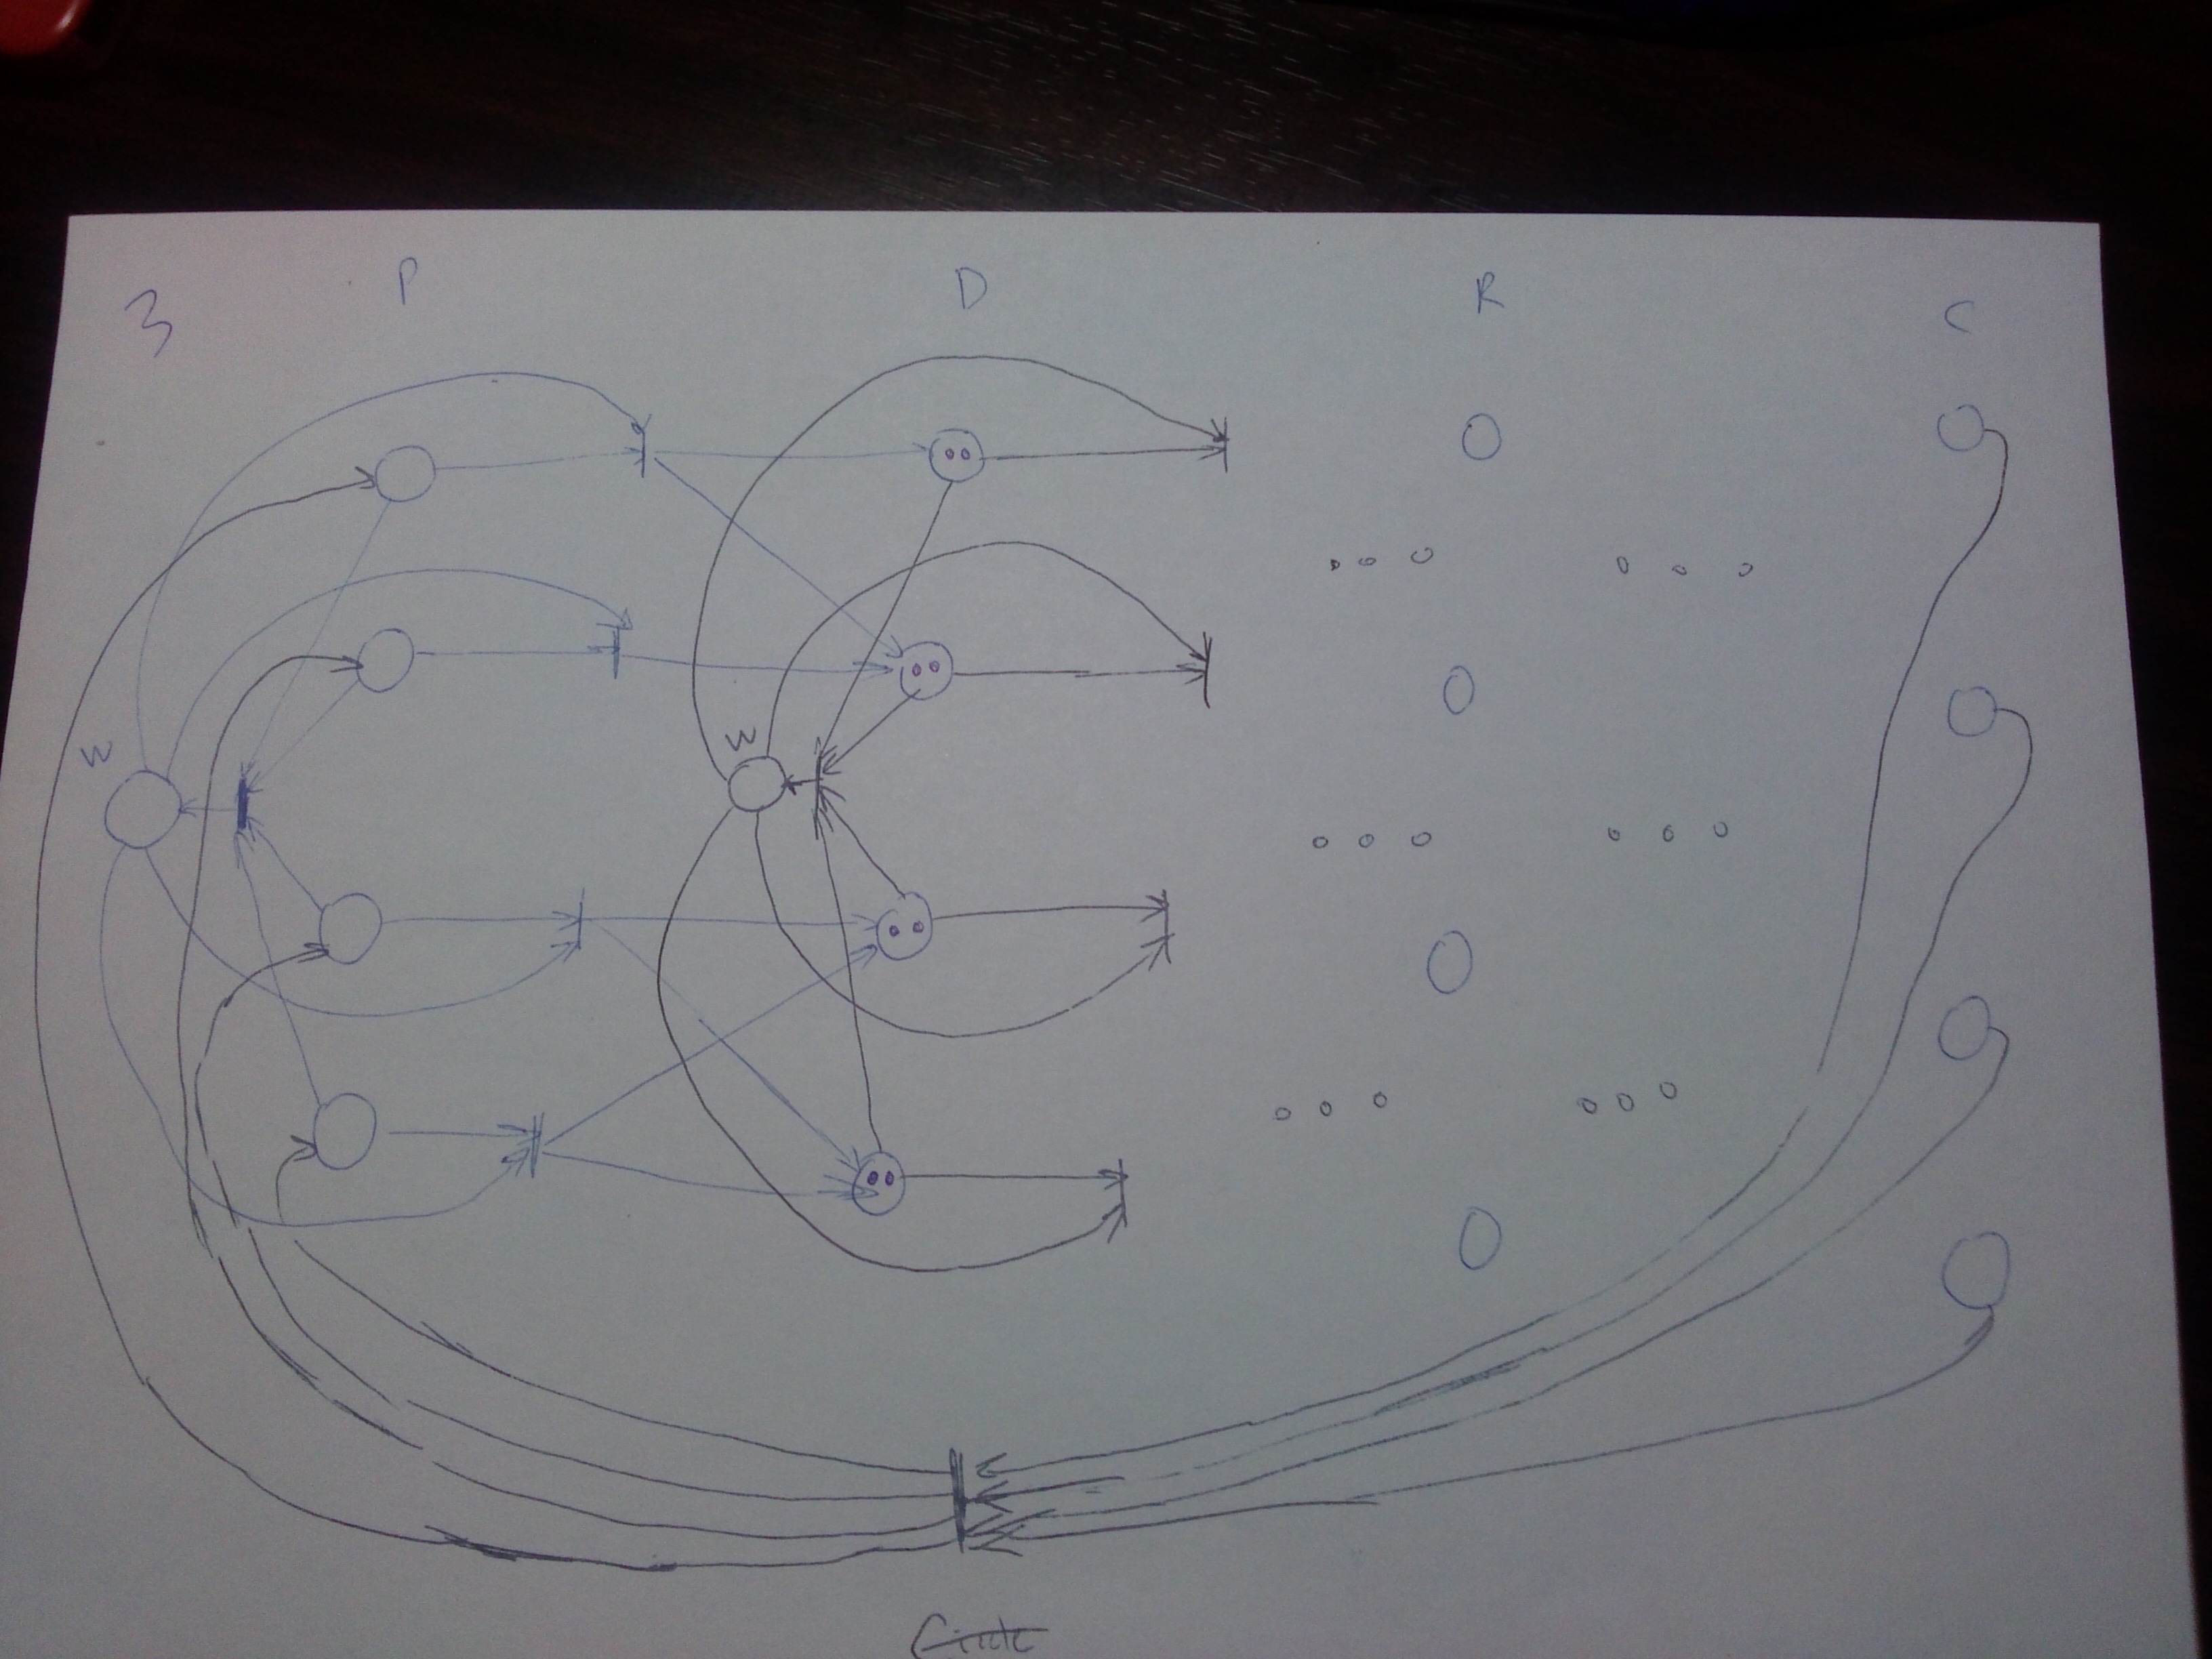 3 P D R C
W
W
Circle